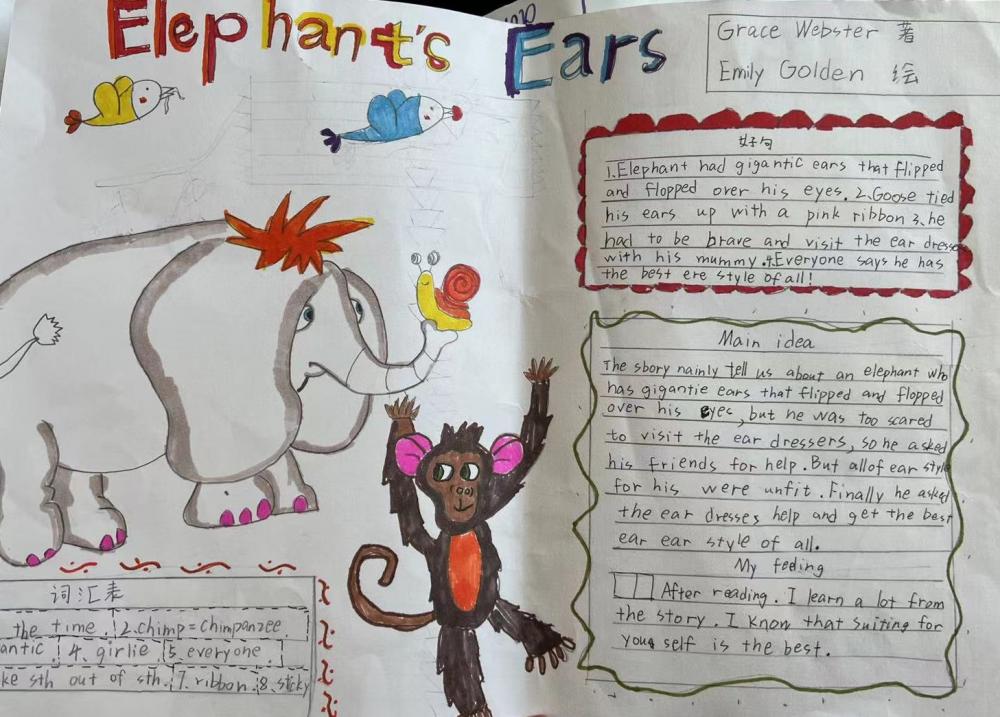 Elephant's Ears
Grace Webster 著
Emily Golden 绘
好句
1.Elephant had gigantic ears that flipped
and flopped over his eyes. 2.Goose tied
his ears up with a pink ribbon 3.he
had to be brave and visit the ear dresse
with his mummy.4.Everyone says he has
the best ere style of all!
Main idea
The sbory nainly tell us about an elephant who
has gigantie ears that flipped and flopped
over his eyes, but he was too scared
to visit the ear dressers, so he asked
his friends for help. But all of ear style
for his were unfit. Finally he asked
the ear dresses help and get the best
ear ear style of all.
My feeling
After reading. I learn a lot from
the story. I know that suiting for
your self is the best.
词汇表
the time 2.chimp=chimpanzee
antic 4、girlie 5.everyone
ke sth out of sth. 7.ribbon. 8.sticky